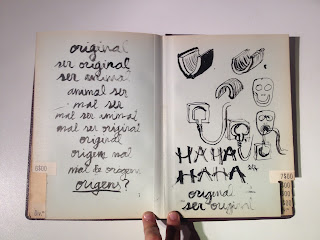 original
ser original
ser animal
animal ser
mal ser
mal ser animal
mal ser original
original
origem mal
mal de origem
origens?
HAHA
HAHA
original
ser original